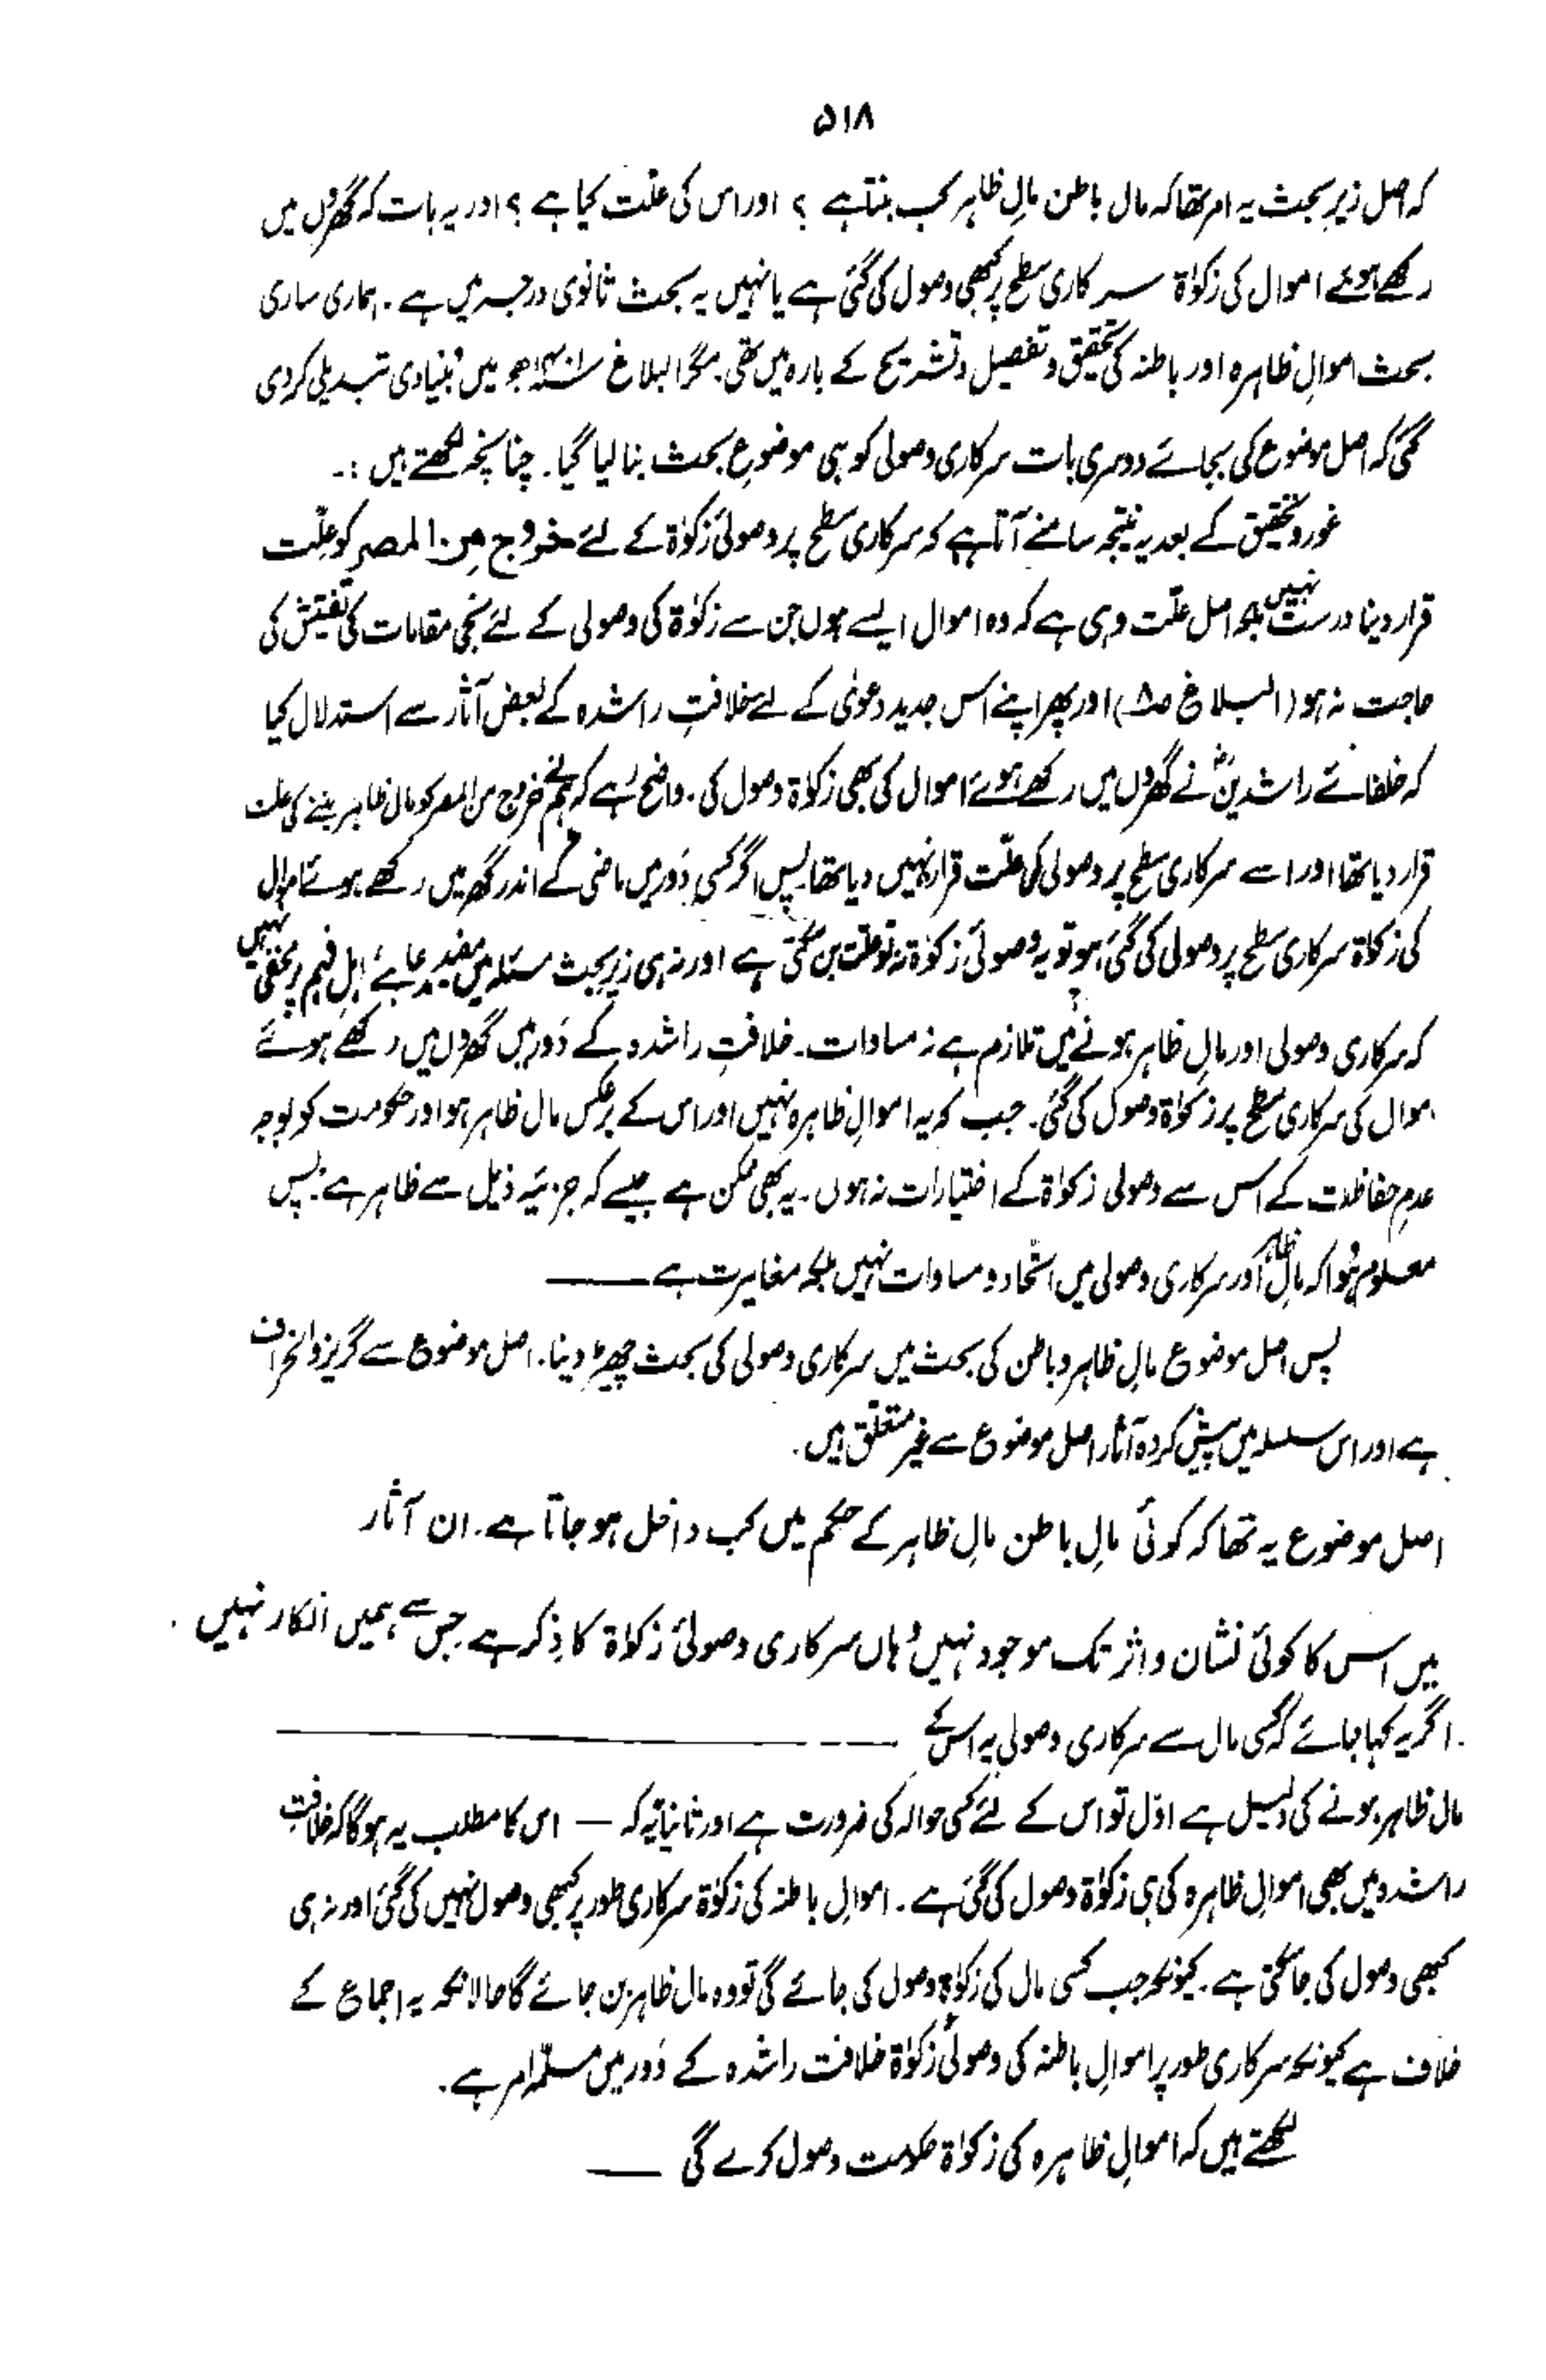 ۵۱۸
کہ اصل زیرِ بحث یہ امر تھا کہ مال باطن مالِ ظاہر کب بنتا ہے ؟ اور اس کی علّت کیا ہے ؟ اور یہ بات کہ گھروں میں
رکھے ہوئے اموال کی زکوٰۃ سرکاری سطح پر کبھی وصول کی گئی ہے یا نہیں یہ بحث ثانوی درجہ میں ہے ۔ ہماری ساری
بحث اموالِ ظاہرہ اور باطنہ کی تحقیق و تفصیل و تشریح کے بارہ میں تھی ۔ مگر البلاغ میں بُنیادی تبدیلی کر دی
گئی کہ اصل موضوع کی بجائے دوسری بات سرکاری وصولی کو ہی موضوعِ بحث بنا لیا گیا۔ چنانچہ لکھتے ہیں :۔
غور و تحقیق کے بعد یہ نتیجہ سامنے آتا ہے کہ سرکاری سطح پر وصولیٔ زکوٰۃ کے لئے خروج مِن المصر کو علّت
قرار دینا درست نہیں بلکہ اصل علّت وہی ہے کہ وہ اموال ایسے ہوں جن سے زکوٰۃ کی وصولی کے لئے نجی مقامات کی تفتیش کی
حاجت نہ ہو (البلاغ ص۵) اور پھر اپنے اس جدید دعوٰی کے لئے خلافتِ راشدہ کے بعض آثار سے استدلال کیا
کہ خلفائے راشدینؓ نے گھروں میں رکھے ہوئے اموال کی بھی زکوٰۃ وصول کی ۔ واضح رہے کہ ہم نے خروج من المصر کو مال ظاہر بننے کی علت
قرار دیا تھا اور اسے سرکاری سطح پر وصولی کی علّت قرار نہیں دیا تھا پس اگر کسی دَور میں ماضی کے اندر گھر میں رکھے ہوئے اموال
کی زکوٰۃ سرکاری سطح پر وصولی کی گئی ہو تو یہ وصولیٔ زکوٰۃ نہ تو علّت بن سکتی ہے اور نہ ہی زیرِ بحث مسئلہ میں مفید مدعا ہے اہلِ فہم پر مخفی نہیں
کہ سرکاری وصولی اور مالِ ظاہر ہونے میں تلازم ہے نہ مساوات ۔ خلافتِ راشدہ کے دَور میں گھروں میں رکھے ہوئے
اموال کی سرکاری سطح پر زکوٰۃ وصول کی گئی ۔ جب کہ یہ اموالِ ظاہرہ نہیں اور اس کے برعکس مال ظاہر ہو اور حکومت کو بوجہ
عدمِ حفاظت کے اس سے وصولی زکوٰۃ کے اختیارات نہ ہوں ۔ یہ بھی ممکن ہے جیسے کہ جزئیہ ذیل سے ظاہر ہے ۔ پس
معلوم ہُوا کہ مالِ ظاہر اور سرکاری وصولی میں اتحاد و مساوات نہیں بلکہ مغایرت ہے ———
پس اصل موضوع مالِ ظاہر و باطن کی بحث میں سرکاری وصولی کی بحث چھیڑ دینا۔ اصل موضوع سے گریز و انحراف
ہے اور اس سلسلہ میں پیش کردہ آثار اصل موضوع سے غیر متعلّق ہیں ۔
اصل موضوع یہ تھا کہ کوئی مالِ باطن مالِ ظاہر کے حکم میں کب داخل ہو جاتا ہے ۔ ان آثار
میں اس کا کوئی نشان و اثر تک موجود نہیں وہاں سرکاری وصولئ زکوٰۃ کا ذِکر ہے جس سے ہمیں انکار نہیں ۔
اگر یہ کہا جائے کہ کسی مال سے سرکاری وصولی یہ اس کے ———
مال ظاہر ہونے کی دلیل ہے اوّل تو اس کے لئے کسی حوالہ کی ضرورت ہے اور ثانیاً یہ کہ — اس کا مطلب یہ ہوگا کہ خلافتِ
راشدہ میں بھی اموالِ ظاہرہ کی ہی زکوٰۃ وصول کی گئی ہے ۔ اموالِ باطنہ کی زکوٰۃ سرکاری طور پر کبھی وصول نہیں کی گئی اور نہ ہی
کبھی وصول کی جا سکتی ہے ۔ کیونکہ جب کسی مال کی زکوٰۃ وصول کی جائے گی تو وہ مال ظاہر بن جائے گا حالانکہ یہ اجماع کے
خلاف ہے کیونکہ سرکاری طور پر اموالِ باطنہ کی وصولیٔ زکوٰۃ خلافت راشدہ کے دَور میں مسلّم امر ہے ۔
لکھتے ہیں کہ اموالِ ظاہرہ کی زکوٰۃ حکومت وصول کرے گی ——